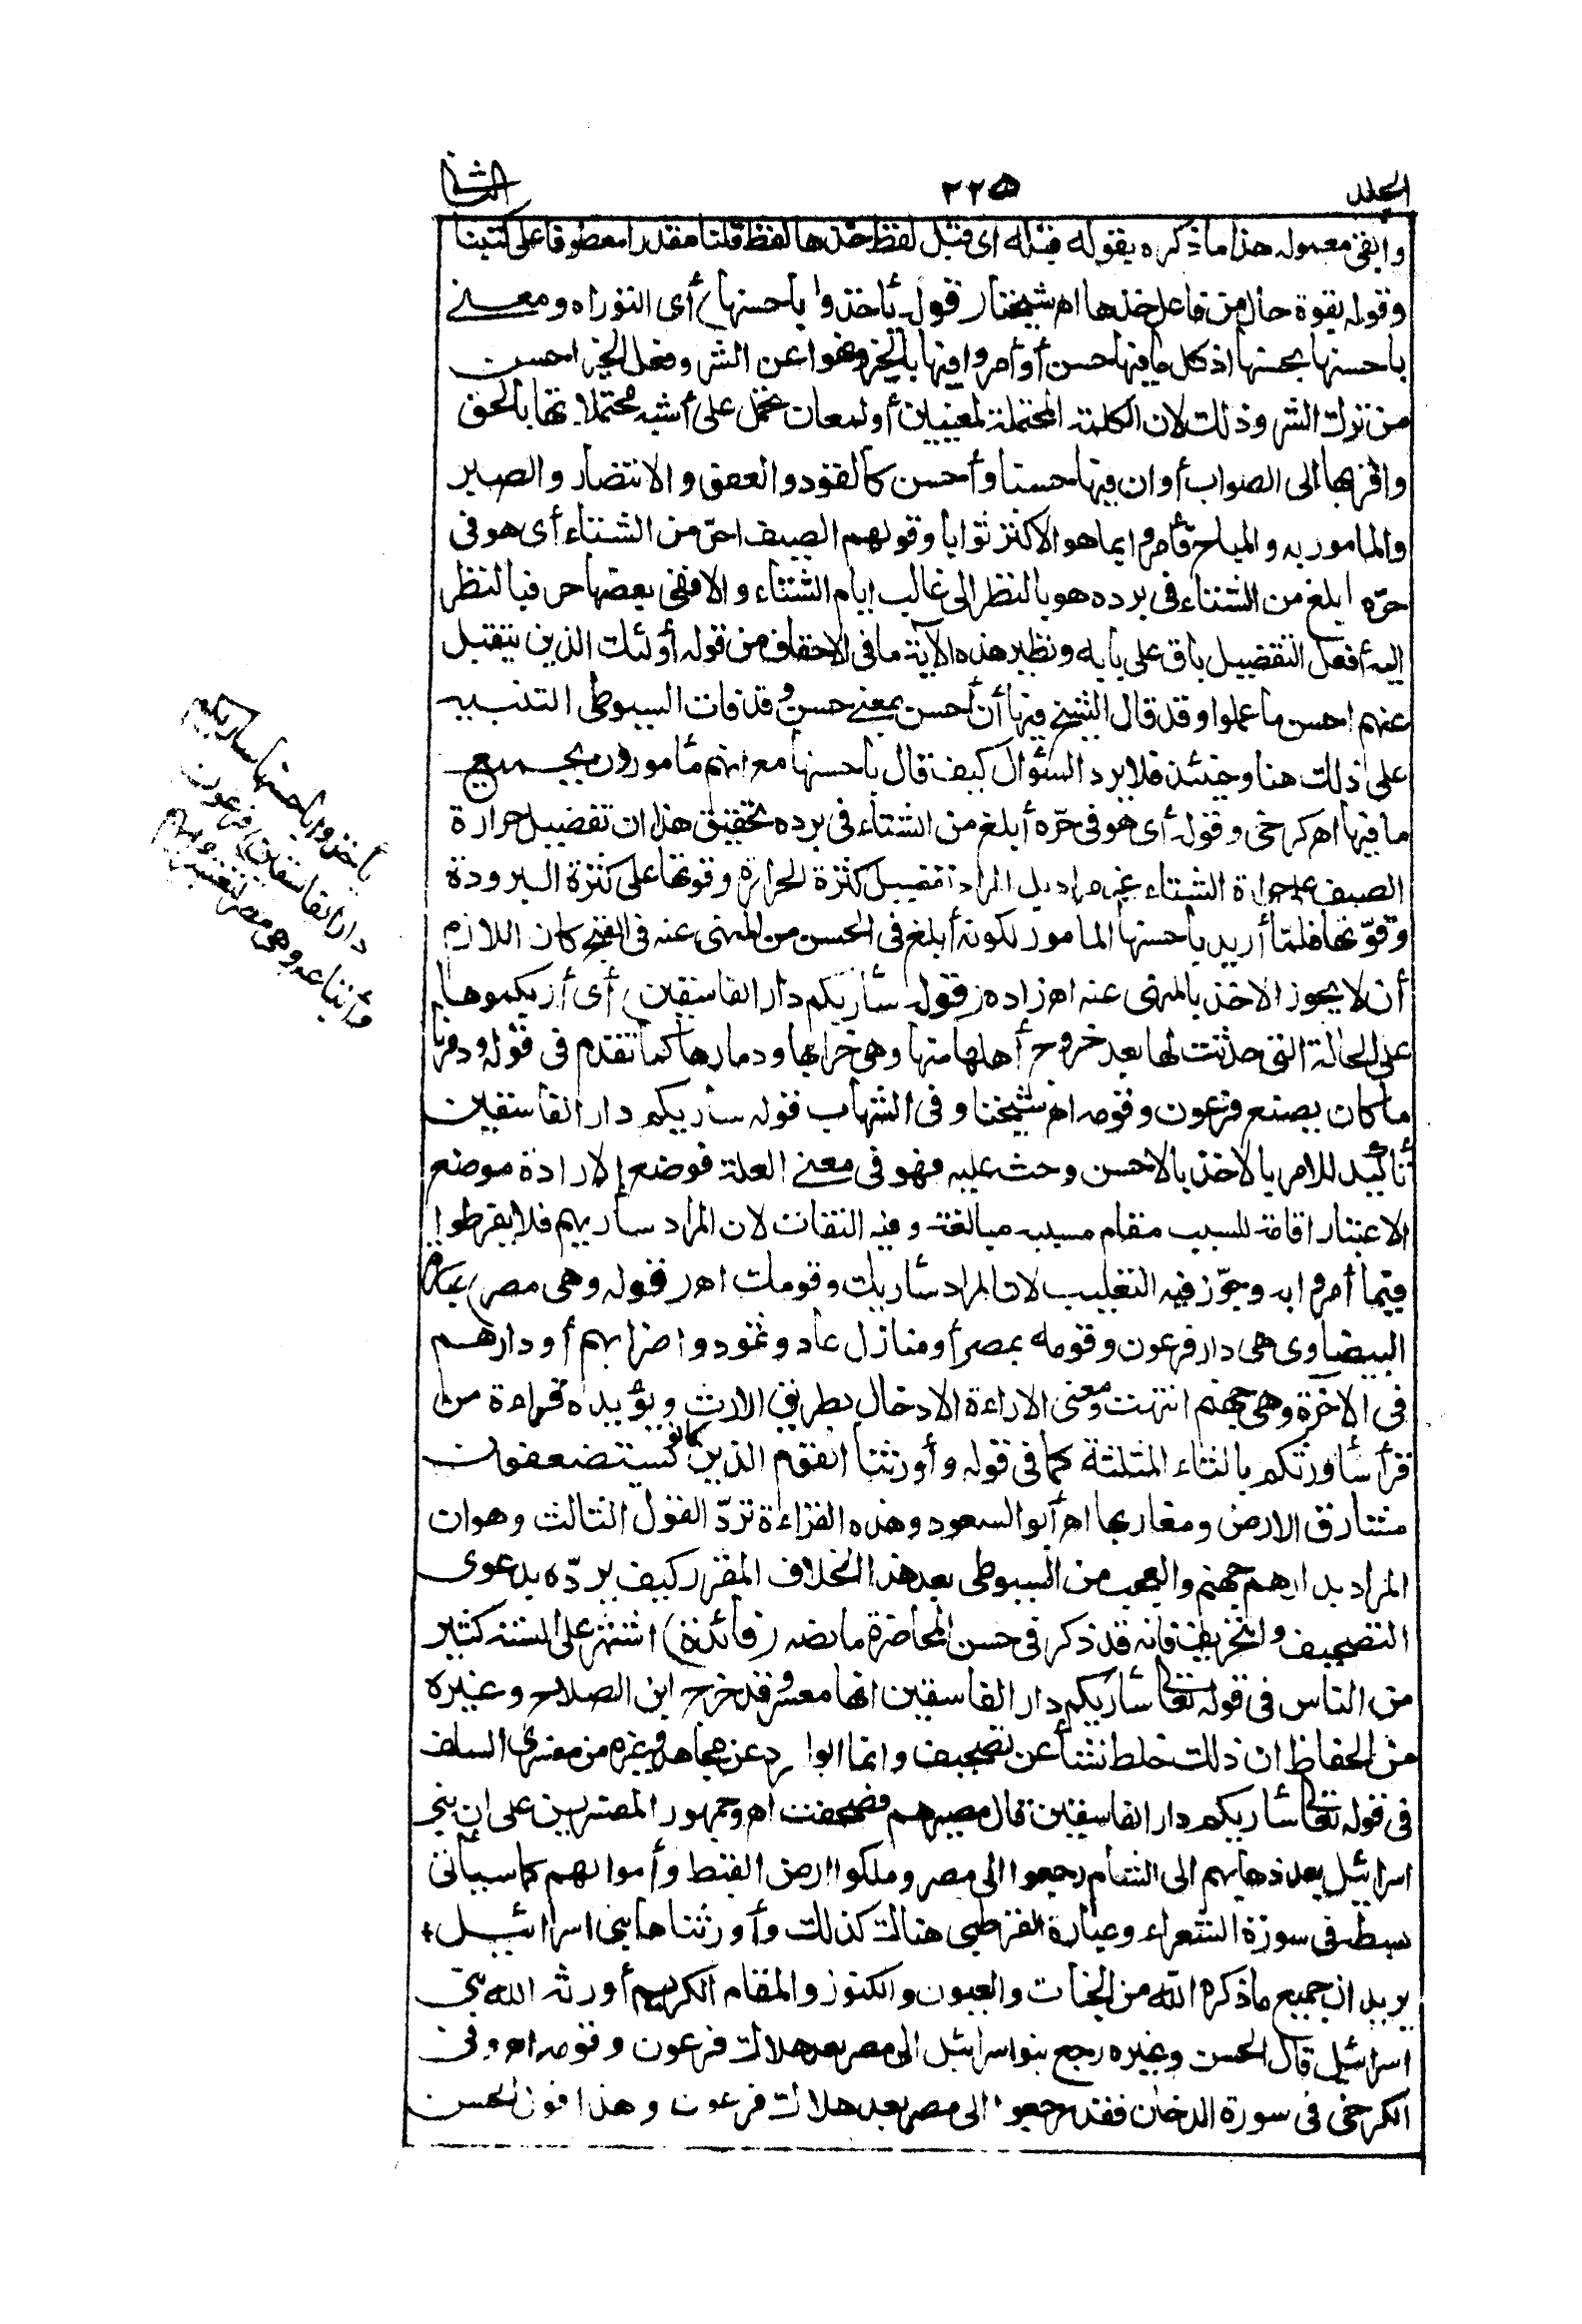 الجلد ٢٢٥ الثانى
وابقى معموله هذا ما ذكره بقوله قبله اى قبل لفظ خذها لفظ قلنا مقدرا معطوفا على كتبنا
وقوله بقوة حال من فاعل خذها اهـ شيخنا ر قوله يأخذوا بأحسنها) أى التوراة ومعنى
بأحسنها بحسنها اذ كل ما فيها حسن أو أمروا فيها بالخير ونهوا عن الشر وفعل الخير احسن
من ترك الشر وذلك لان الكلمة المحتملة لمعنيين أو لمعان تحمل على أشبه محتملاتها بالحق
واقربها الى الصواب أو ان فيها حسنا وأحسن كالقود والعفو و الانتصار والصبر
والمأمور به والمباح فأمروا بما هو الاكثر ثوابا وقولهم الصيف احرّ من الشتاء أى هو فى
حرّه ابلغ من الشتاء فى برده هو بالنظر الى غالب ايام الشتاء والا ففى بعضها حر فبالنظر
اليه أفعل التفضيل باق على بابه ونظير هذه الآية ما فى الاحقاف من قوله أولئك الذين يتقبل
عنهم احسن ما عملوا وقد قال الشيخ فيها أن أحسن بمعنى حسن وقد فات السيوطى التنبيه
على ذلك هنا وحينئذ فلا يرد السؤال كيف قال بأحسنها مع انهم مأمورون بجميع
ما فيها اهـ كرخى وقوله أى هو فى حرّه أبلغ من الشتاء فى برده تحقيق هذا ان تفضيل حرارة
الصيف على حرارة الشتاء غير مراد بل المراد تفضيل كثرة الحرارة وقوتها على كثرة البرودة
وقوّتها فلما أريد بأحسنها المامور لكونه أبلغ فى الحسن من المنهى عنه فى القبح كان اللازم
أن لا يجوز الاخذ بالمنهى عنه اهـ زاده ر قوله سأريكم دار الفاسقين) أى أريكموها
على الحالة التى حدثت لها بعد خروج أهلها منها وهى خرابها ودمارها كما تقدم فى قوله ودمرنا
ما كان يصنع فرعون وقومه اهـ شيخنا وفى الشهاب قوله سأريكم دار الفاسقين
تأكيد للامر بالاخذ بالاحسن وحث عليه فهو فى معنى العلة فوضع الارادة موضع
الاعتبار اقامة للسبب مقام مسببه مبالغة وفيه التفات لان المراد سأريهم فلا يفرطوا
فيما أمروا به وجوّز فيه التغليب لان المراد سأريك وقومك اهـ ر قوله وهى مصر) عبارة
البيضاوى هى دار فرعون وقومه بمصر أو منازل عاد وثمود واضرابهم أو دارهم
فى الاخرة وهى جهنم انتهت ومعنى الاراءة الادخال بطريق الارث ويؤيده قراءة من
قرأ سأورثكم بالثاء المثلثة كما فى قوله وأورثنا القوم الذين كانوا يستضعفون
مشارق الارض ومغاربها اهـ أبو السعود وهذه القراءة تردّ القول الثالث وهو ان
المراد بدارهم جهنم والعجب من السيوطى بعد هذا الخلاف المقرر كيف يردّه بدعوى
التصحيف والتحريف فانه قد ذكر فى حسن المحاضرة ما نصه (فائدة) اشتهر على السنة كثير
من الناس فى قوله تعالى سأريكم دار الفاسقين انها مصر وقد خرج ابن الصلاح وغيره
من الحفاظ ان ذلك غلط نشأ عن تصحيف وانما الوارد عن مجاهد وغيره من مفسرى السلف
فى قوله تعالى سأريكم دار الفاسقين قال مصيرهم فصحفت اهـ وجمهور المفسرين على ان بنى
اسرائيل بعد ذهابهم الى الشام رجعوا الى مصر وملكوا ارض القبط وأموالهم كما سيأتى
بسطه فى سورة الشعراء وعبارة القرطبى هنالك كذلك وأورثناها بنى اسرائيل
يريد ان جميع ما ذكره الله من الجنات والعيون والكنوز والمقام الكريم أورثه الله بنى
اسرائيل قال الحسن وغيره رجع بنو اسرائيل الى مصر بعد هلاك فرعون وقومه اهـ وفى
الكرخى فى سورة الدخان فقد رجعوا الى مصر بعد هلاك فرعون وهذا قول الحسن
يأخذوا بأحسنها سأريكم
دار الفاسقين) فرعون
وأتباعه وهى مصر لتعتبروا بهم